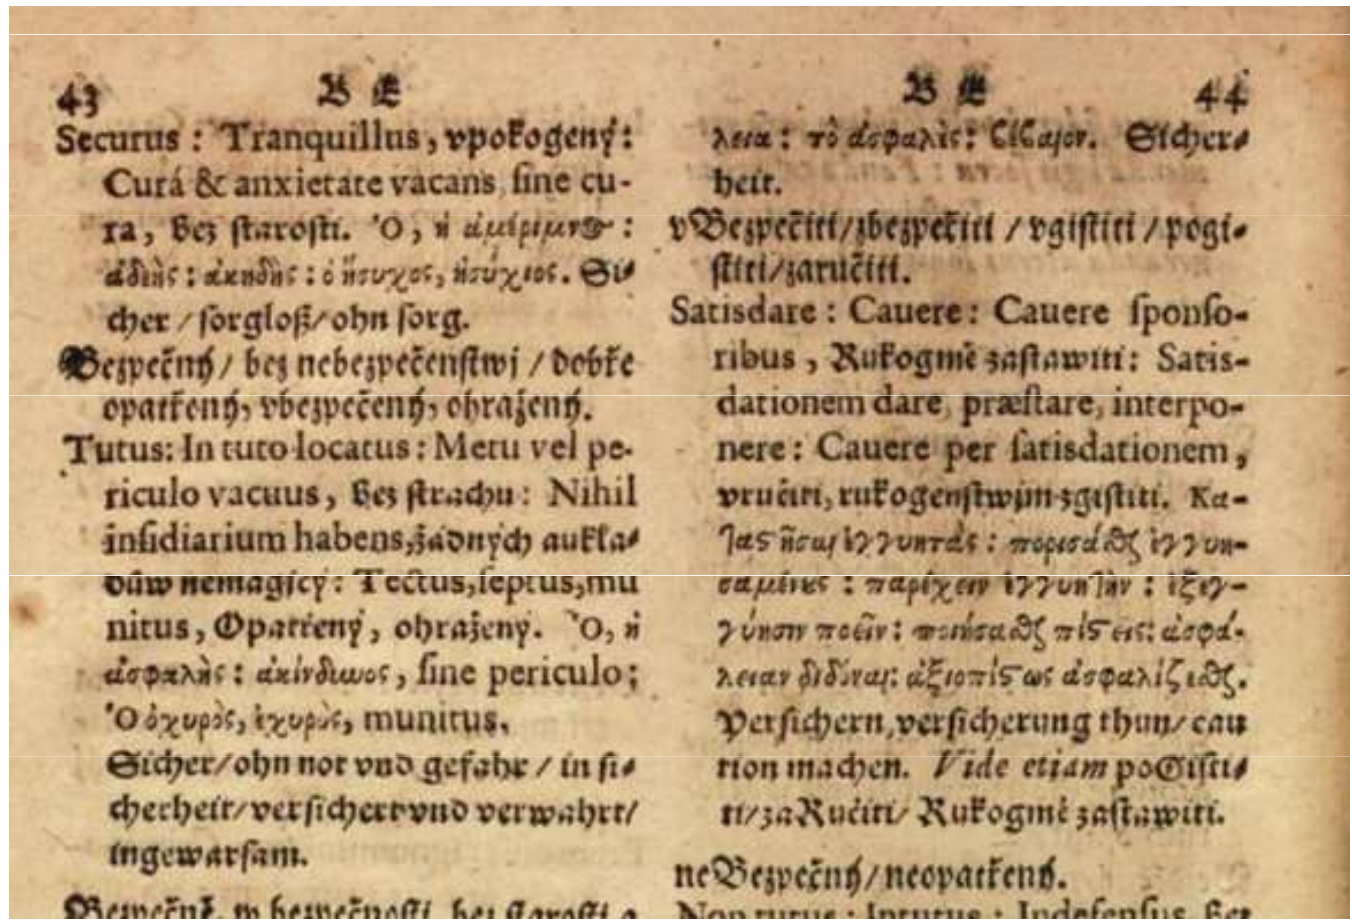 43 B E
Securus : Tranquillus, vpokogený:
Curá & anxietate vacans, ſine cu-
ra, bez staroſti. Ὁ, ἡ ἀμέριμνος :
ἀδεὴς : ἀκηδὴς : ὁ ἥσυχος, ἡσύχιος. Si-
cher / ſorgloß / ohn ſorg.
Bezpečný / bez nebezpečenſtwj / dobře
opatřený, vbezpečený, ohražený.
Tutus: In tuto locatus : Metu vel pe-
riculo vacuus, Bez ſtrachu : Nihil
inſidiarium habens, žádných aukla-
důw nemagjcý: Tectus, ſeptus, mu
nitus, Opatřený, ohražený. Ὁ, ἡ
ἀσφαλὴς : ἀκίνδυνος, ſine periculo;
Ὁ ὀχυρὸς, ἐχυρὸς, munitus.
Sicher / ohn not vnd gefahr / in ſi-
cherheit / verſichert vnd verwahrt /
ingewarſam.
Bezpečně, w bezpečnoſti, bez ſtaroſti a
B E 44
λεια : τὸ ἀσφαλὲς : βέβαιον. Sicher-
heit.
vBezpečiti / zbezpečiti / vgiſtiti / pogi-
ſtiti / zaručiti.
Satisdare : Cauere : Cauere ſponſo-
ribus, Rukogmě zaſtawiti: Satis-
dationem dare, præſtare, interpo-
nere : Cauere per ſatisdationem,
vručiti, rukogenſtwjm zgiſtiti. Κα-
ταστῆσαι ἐγγυητάς : πορίσασθαι ἐγγυη-
σαμένους : παρέχειν ἐγγυητὴν : ἐξεγ-
γύησιν ποιεῖν : ποιήσασθαι πίστεις: ἀσφά-
λειαν διδόναι: ἀξιοπίστως ἀσφαλίζεσθαι.
Verſichern, verſicherung thun / cau
tion machen. Vide etiam poGiſti-
ti / zaRučiti / Rukogmě zaſtawiti.
neBezpečný / neopatřený.
Non tutus : Intutus : Indefenſus, Bez